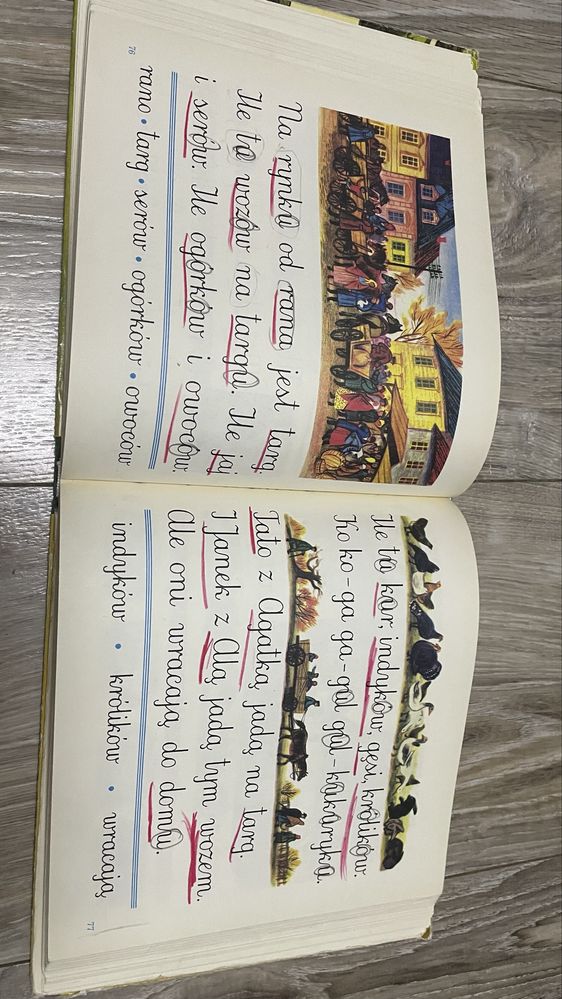 Na rynku od rana jest targ.
Ile tu wozów na targu. Ile jaj
i serów. Ile ogórków i owoców.
rano • targ • serów • ogórków • owoców
76
Ile tu kur, indyków, gęsi, królików.
Ko ko-ga ga-gul gul-kukuryku.
Tato z Agatką jadą na targ.
I Janek z Alą jadą tym wozem.
Ale oni wracają do domu.
indyków • królików • wracają
77